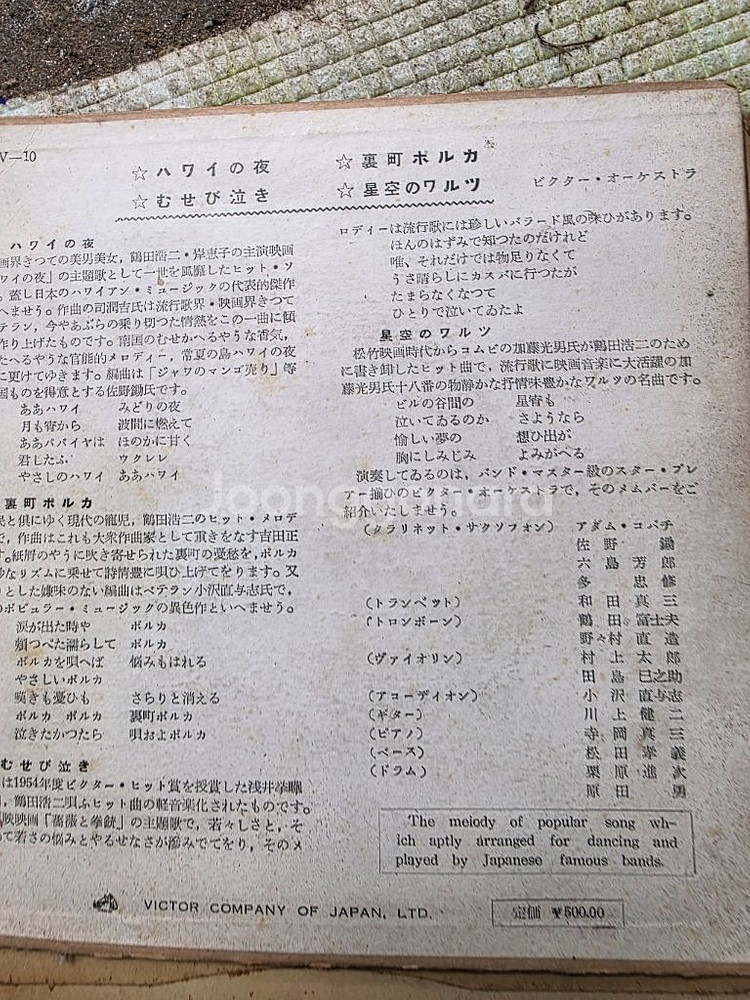 V—10
☆ハワイの夜
☆むせび泣き
☆裏町ポルカ
☆星空のワルツ
ビクター・オーケストラ
ハワイの夜
画界きつての美男美女，鶴田浩二・岸恵子の主演映画
ワイの夜」の主題歌として一世を風靡したヒット・ソ
。蓋し日本のハワイアン・ミュージックの代表的傑作
へませう。作曲の司潤吉氏は流行歌界・映画界きつて
テラン，今やあぶらの乗り切つた情熱をこの一曲に傾
作り上げたものです。南国のむせかへるやうな香気，
たへるやうな官能的メロディー，常夏の島ハワイの夜
に更けてゆきます。編曲は「ジャワのマンゴ売り」等
国ものを得意とする佐野鋤氏です。
ああハワイ　みどりの夜
月も宵から　波間に燃えて
ああパパイヤは　ほのかに甘く
君したふ　ウクレレ
やさしのハワイ　ああハワイ
裏町ポルカ
民と倶にゆく現代の寵児，鶴田浩二のヒット・メロデ
で，作曲はこれも大衆作曲家として重きをなす吉田正
す。紙屑のやうに吹き寄せられた裏町の憂愁を，ポルカ
妙なリズムに乗せて詩情豊に唄ひ上げてをります。又
りとした嫌味のない編曲はベテラン小沢直与志氏で，
のポピュラー・ミュージックの異色作といへませう。
涙が出た時や　ポルカ
頬つぺた濡らして　ポルカ
ポルカを唄へば　悩みもはれる
やさしいポルカ
嘆きも憂ひも　さらりと消える
ポルカ　ポルカ　裏町ポルカ
泣きたかつたら　唄およポルカ
むせび泣き
は1954年度ビクター・ヒット賞を授賞した浅井挙曄
，鶴田浩二唄ふヒット曲の軽音楽化されたものです。
映映画「薔薇と拳銃」の主題歌で，若々しさと，そ
て若さの悩みとやるせなさが滲みでてをり，そのメ
ロディーは流行歌には珍しいバラード風の味ひがあります。
ほんのはずみで知つたのだけれど
唯，それだけでは物足りなくて
うさ晴らしにカスバに行つたが
たまらなくなつて
ひとりで泣いてゐたよ
星空のワルツ
松竹映画時代からコムビの加藤光男氏が鶴田浩二のため
に書き卸したヒット曲で，流行歌に映画音楽に大活躍の加
藤光男氏十八番の物静かな抒情味豊かなワルツの名曲です。
ビルの谷間の　星宵も
泣いてゐるのか　さようなら
愉しい夢の　想ひ出が
胸にしみじみ　よみがへる
演奏してゐるのは，バンド・マスター級のスター・プレ
アー揃ひのビクター・オーケストラで，そのメムバーをご
紹介いたしませう。
（クラリネット・サクソフォン）　アダム・コバチ
佐野　鋤
六島芳郎
多　忠修
（トランペット）　和田真三
（トロンボーン）　鶴田富士夫
野々村直造
（ヴァイオリン）　村上太郎
田島巳之助
（アコーディオン）　小沢直与志
（ギター）　川上健二
（ピアノ）　寺岡真三
（ベース）　松田孝義
（ドラム）　栗原進次
原田　勇
The melody of popular song wh-
ich aptly arranged for dancing and
played by Japanese famous bands.
VICTOR COMPANY OF JAPAN, LTD.
定価　¥500.00
Joonggonara